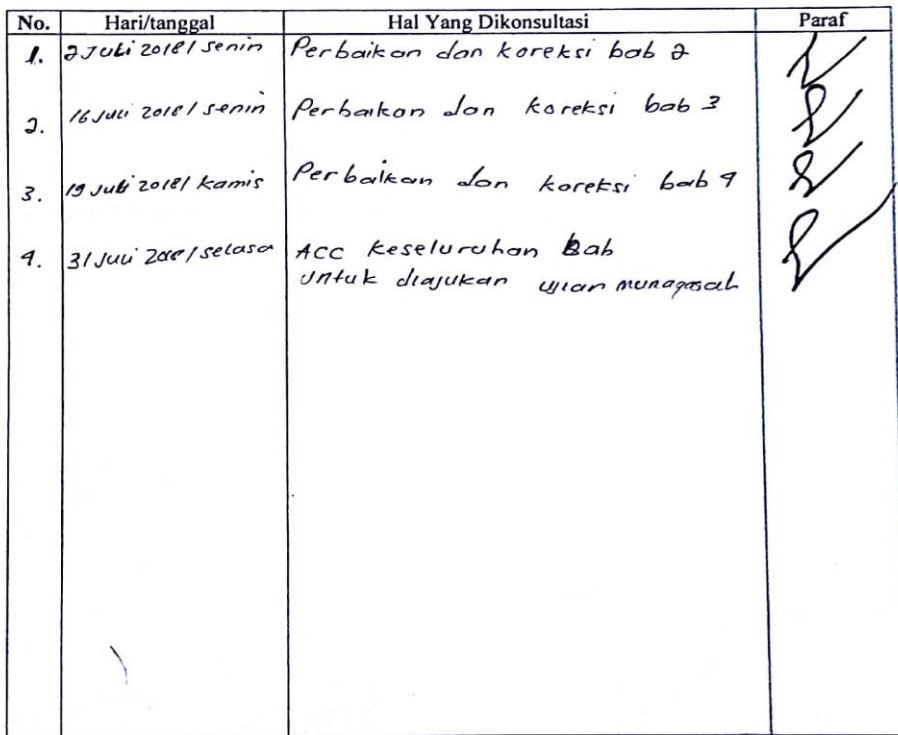 No. Hari/tanggal Hal Yang Dikonsultasi Paraf
1. 2 Juli 2018/ senin Perbaikan dan koreksi bab 2
2. 16 Juli 2018/ senin Perbaikan dan koreksi bab 3
3. 19 Juli 2018/ kamis Perbaikan dan koreksi bab 4
4. 31 Juli 2018/ selasa ACC keseluruhan Bab
untuk diajukan ujian munaqasah